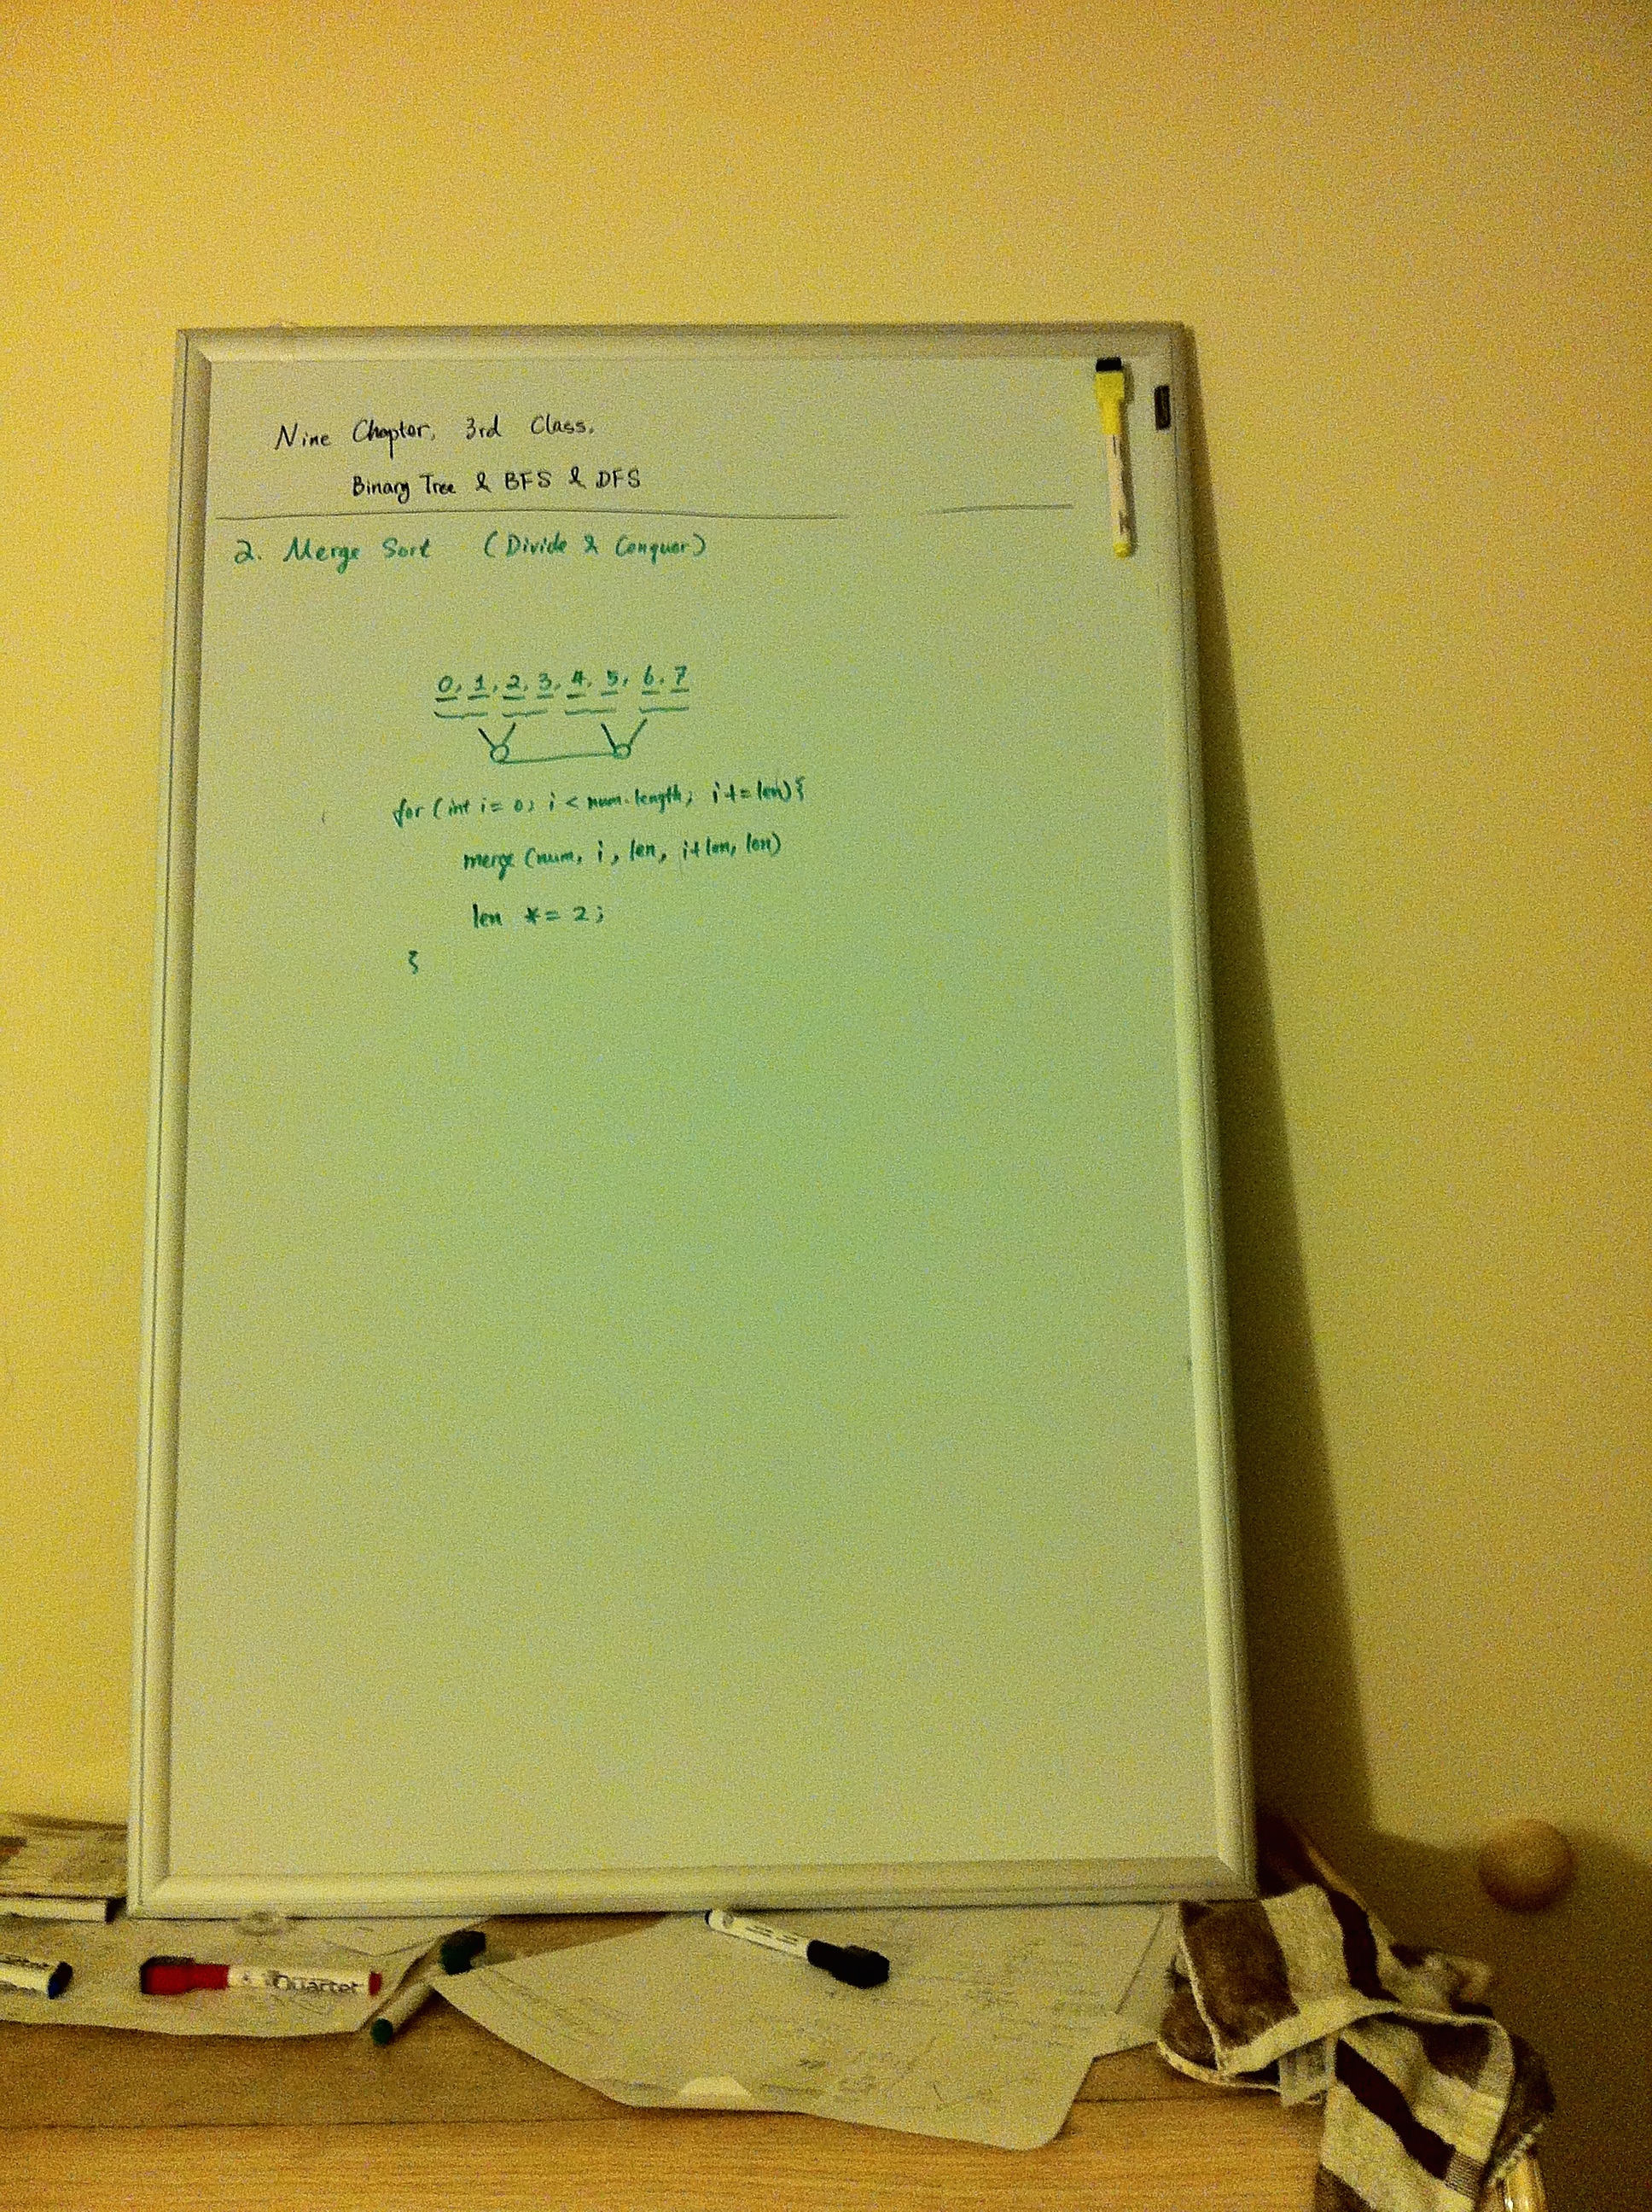 Nine Chapter, 3rd Class.
Binary Tree & BFS & DFS
2. Merge Sort (Divide & Conquer)
0, 1, 2, 3, 4, 5, 6, 7
for (int i = 0; i < num.length; i += len) {
merge (num, i, len, i+len, len)
len *= 2;
}
Quartet